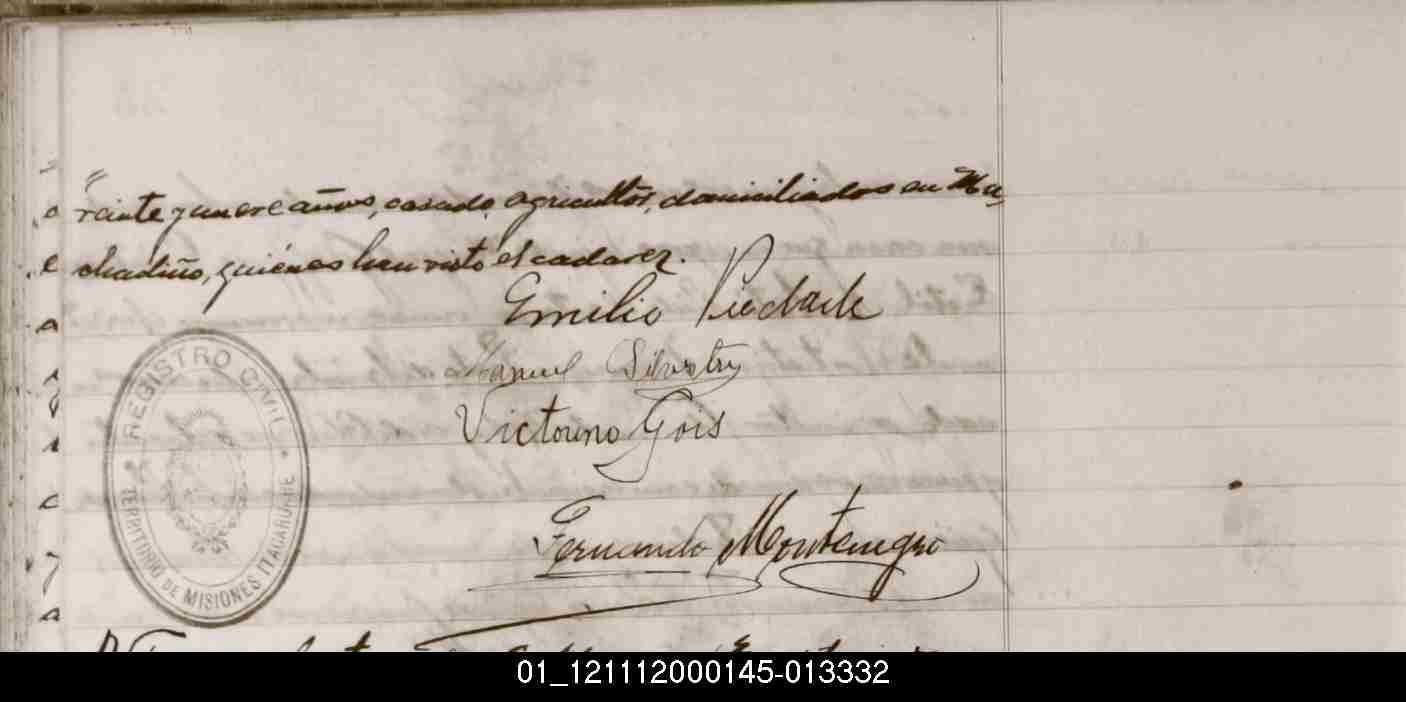 veinte y nueve años, casado, agricultor, domiciliados en Ma-
chadiño, quienes han visto el cadaver.
Emilio Piedade
Manuel Silvestry
Victorino Gois
Fernando Montenegro
REGISTRO CIVIL
TERRITORIO DE MISIONES ITACARUARE
01_121112000145-013332